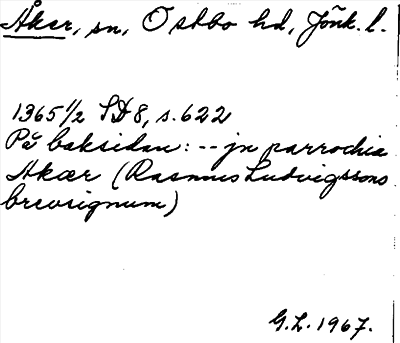 Åker, sn, Östbo hd, Jönk. l.
1365 1/2 SD 8, s. 622
På baksidan: -- jn parrochia
Akær (Rasmus Ludvigssons
brevsignum)
G.L. 1967.